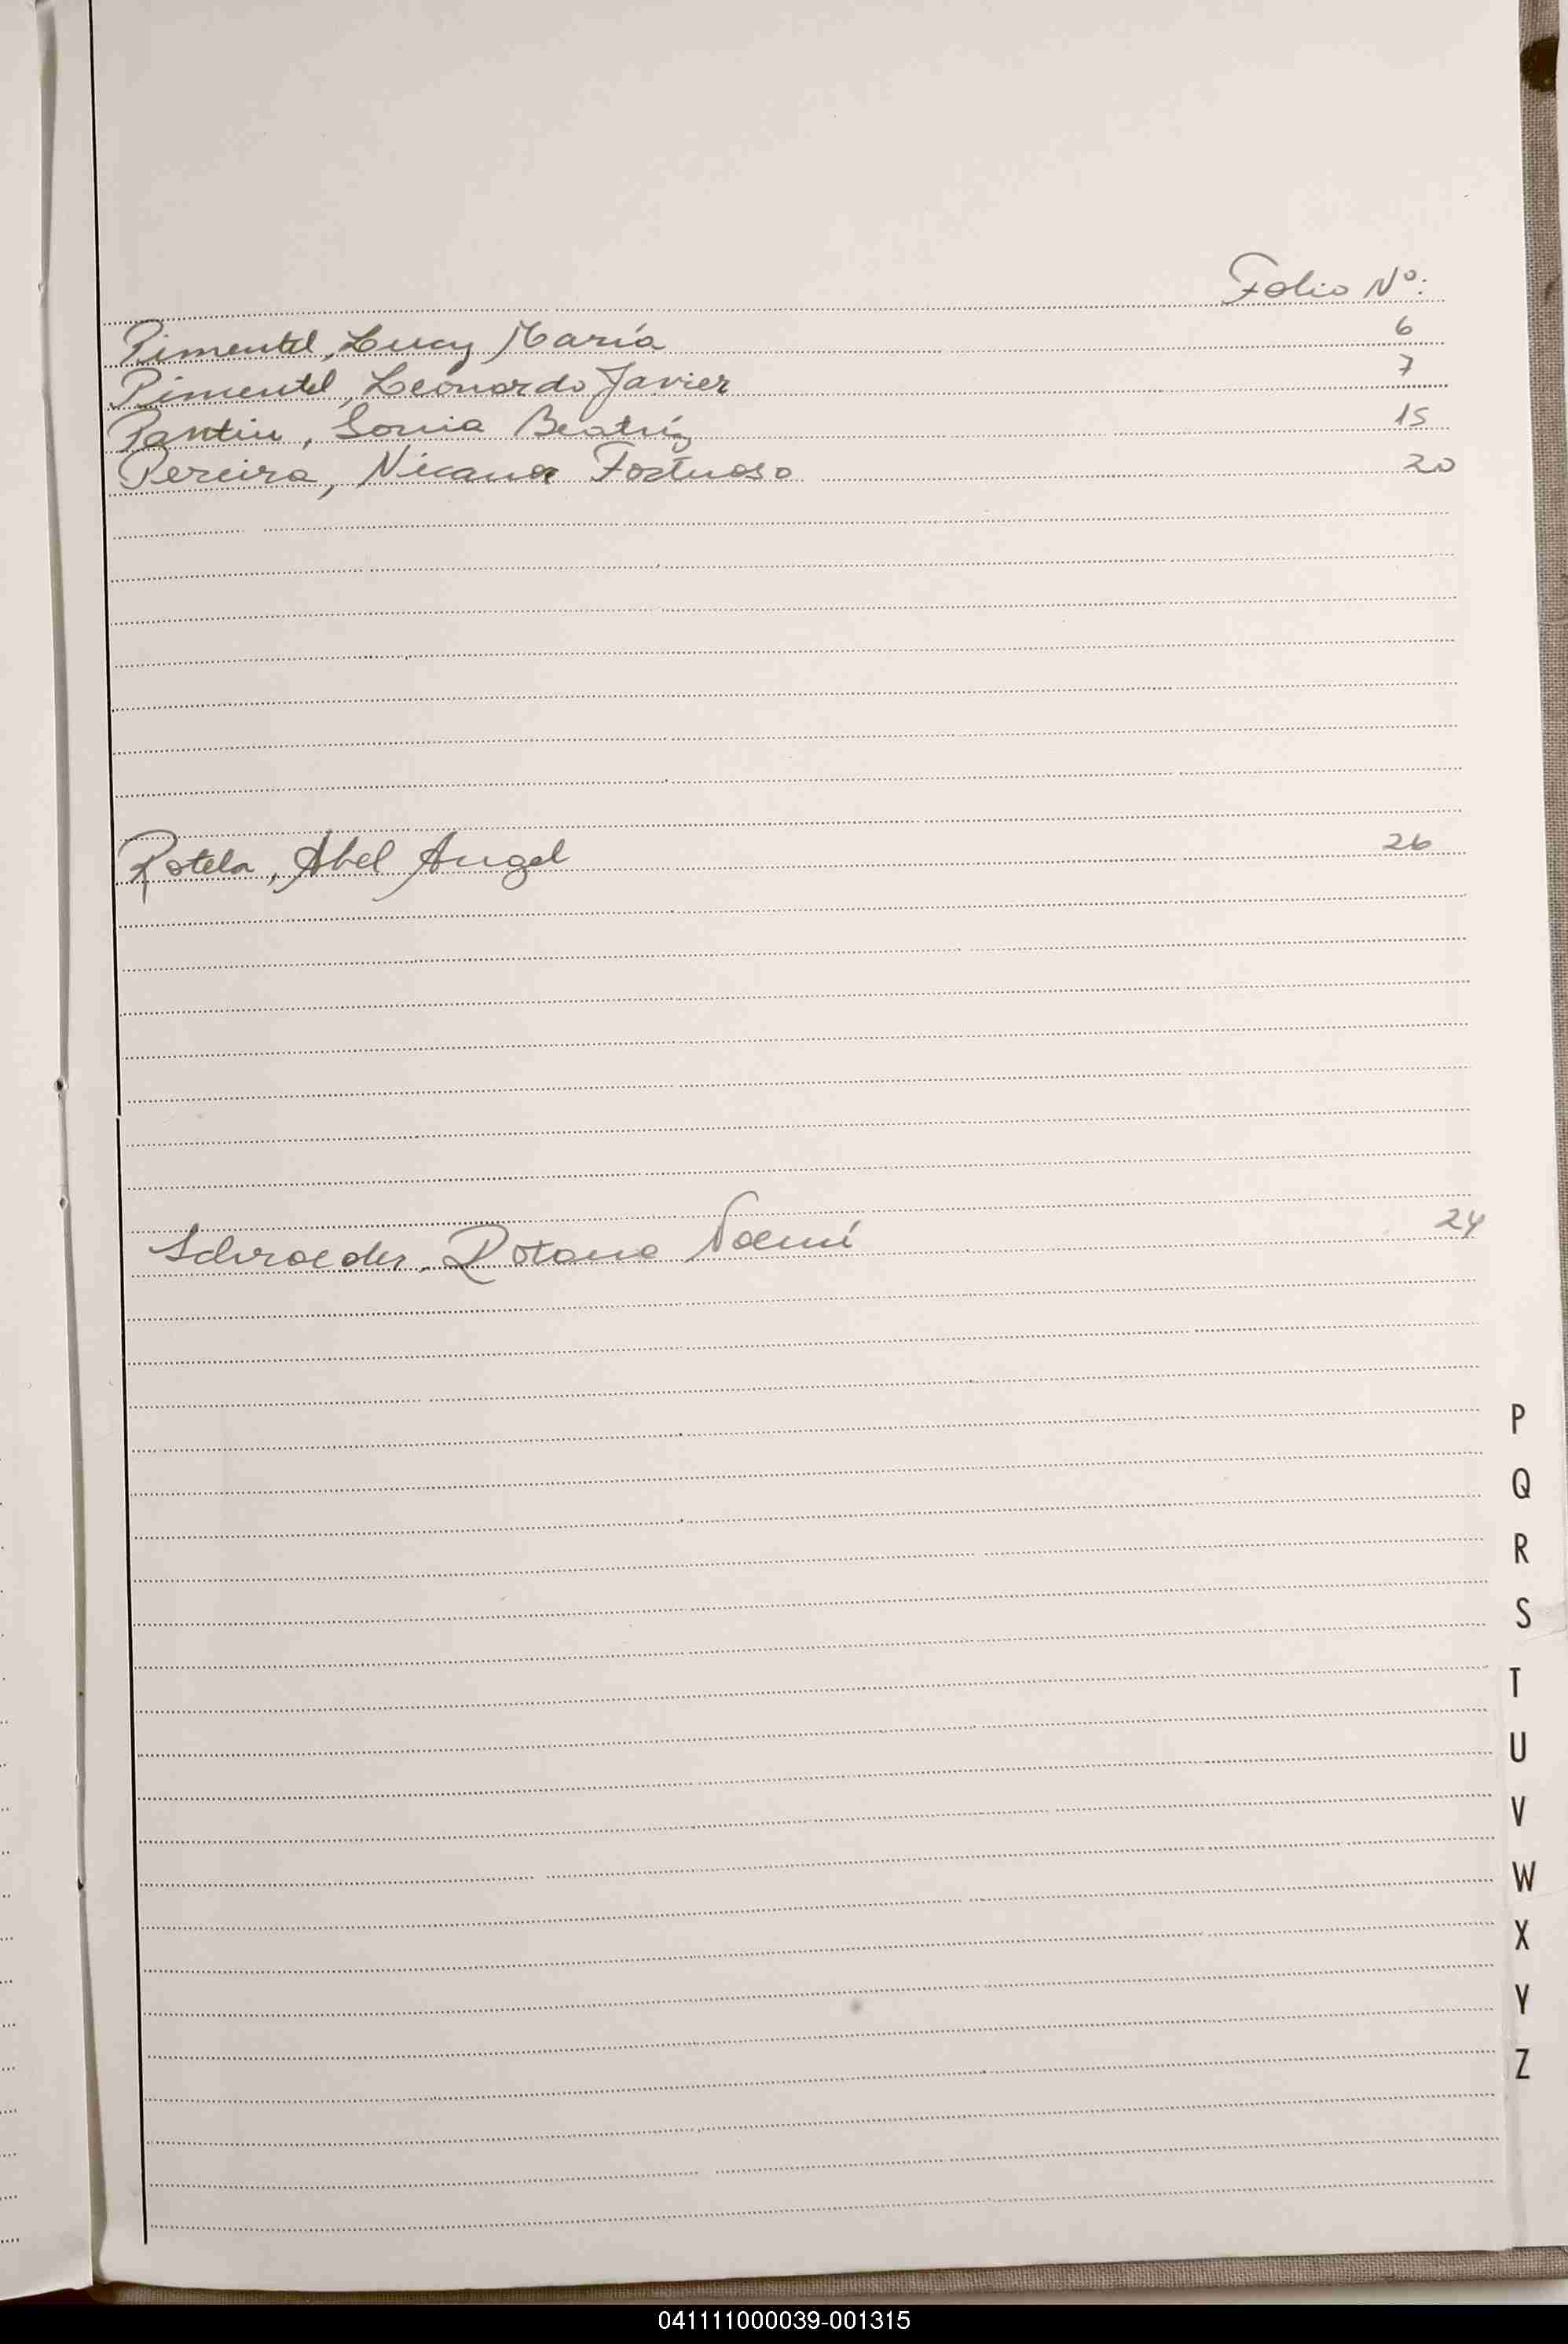 Folio Nº:
Pimentel, Lucy María 6
Pimentel, Leonardo Javier 7
Pantin, Sonia Beatríz 15
Pereira, Nicanor Foctuoso 20
Rotela, Abel Angel 26
Schroeder, Rotana Noemí 24
P
Q
R
S
T
U
V
W
X
Y
Z
041111000039-001315